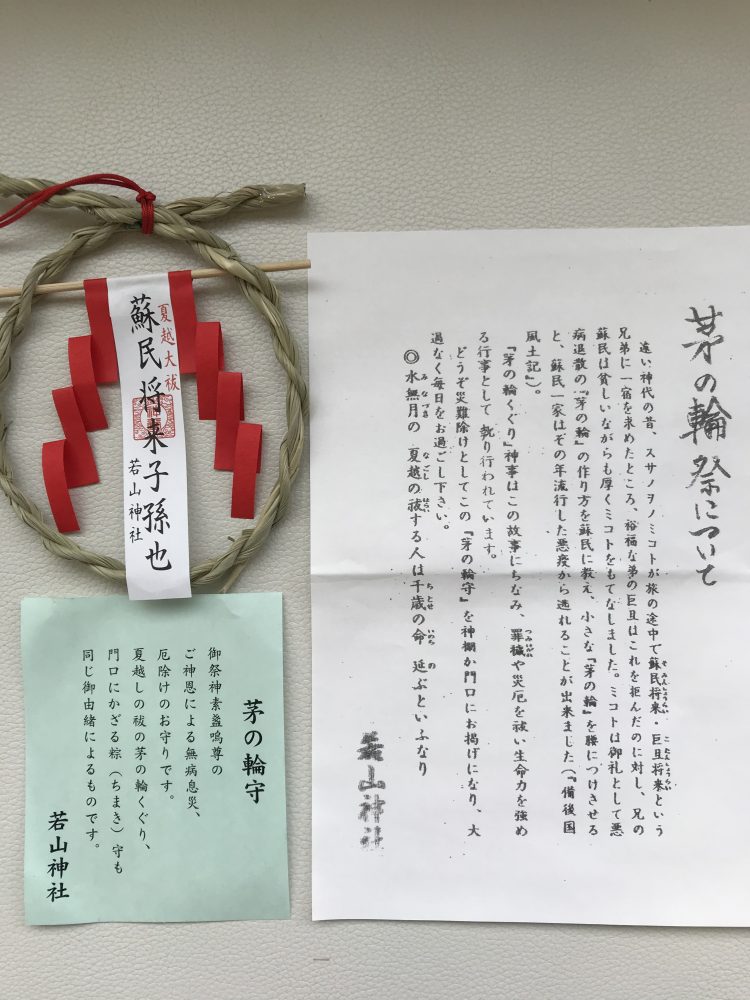 茅の輪祭について
遠い神代の昔、スサノヲノミコトが旅の途中で蘇民将来・巨旦将来という
兄弟に一宿を求めたところ、裕福な弟の巨旦はこれを拒んだのに対し、兄の
蘇民は貧しいながらも厚くミコトをもてなしました。ミコトは御礼として悪
病退散の『茅の輪』の作り方を蘇民に教え、小さな『茅の輪』を腰につけさせる
と、蘇民一家はその年流行した悪疫から逃れることが出来ました(『備後国
風土記』)。
『茅の輪くぐり』神事はこの故事にちなみ、罪穢や災厄を祓い生命力を強め
る行事として執り行われています。
どうぞ災難除けとしてこの『茅の輪守』を神棚か門口にお掲げになり、大
過なく毎日をお過ごし下さい。
◎水無月の 夏越の祓する人は千歳の命 延ぶといふなり
若山神社
夏越大祓
蘇民将来子孫也
若山神社
茅の輪守
御祭神素盞嗚尊の
ご神恩による無病息災、
厄除けのお守りです。
夏越しの祓の茅の輪くぐり、
門口にかざる粽（ちまき）守も
同じ御由緒によるものです。
若山神社